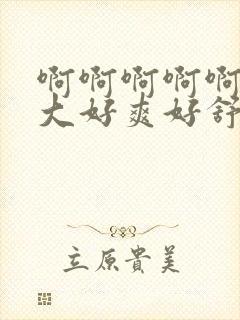 啊啊啊啊啊
大好爽好舒
立原貴美